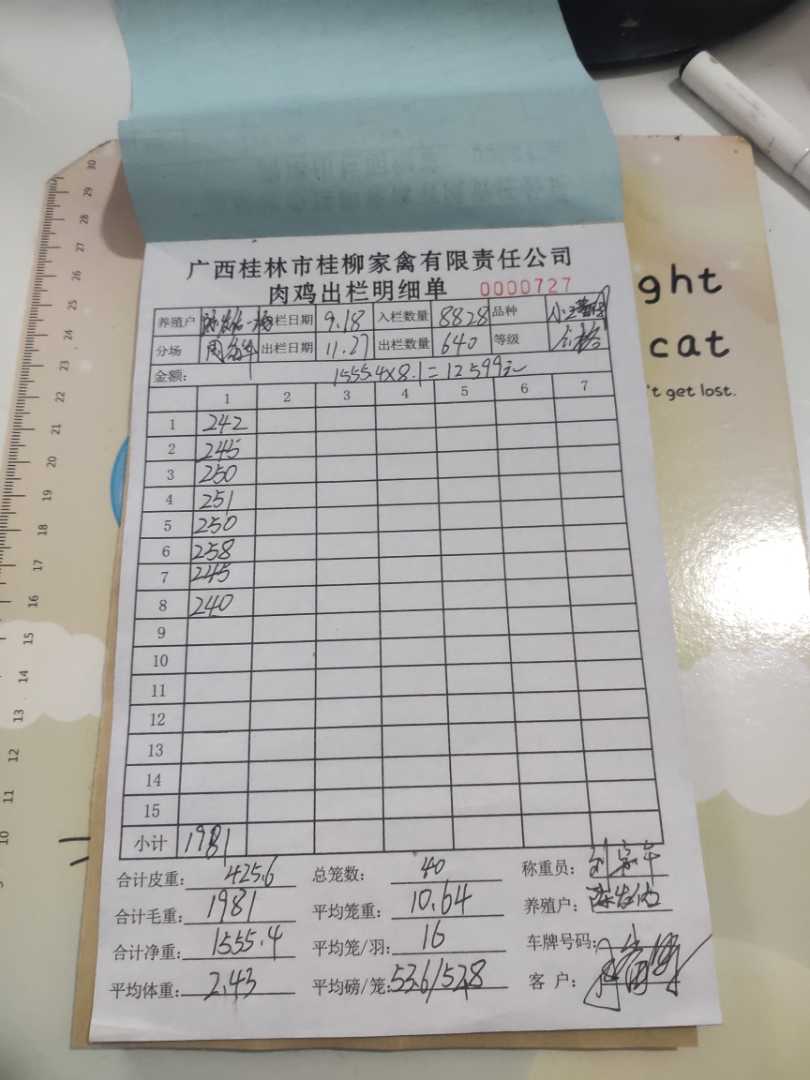 广西桂林市桂柳家禽有限责任公司
肉鸡出栏明细单 0000727
养殖户 栏日期 9.18 入栏数量 8828 品种
分场 出栏日期 11.27 出栏数量 640 等级 合格
金额: 1555.4×8.1=12599元
1 2 3 4 5 6 7
1 242
2 245
3 250
4 251
5 250
6 258
7 245
8 240
9
10
11
12
13
14
15
小计 1981
合计皮重: 425.6 总笼数: 40 称重员:
合计毛重: 1981 平均笼重: 10.64 养殖户:
合计净重: 1555.4 平均笼/羽: 16 车牌号码:
平均体重: 2.43 平均磅/笼: 53.6/52.8 客户:
ght
cat
't get lost.
30
29
28
27
26
25
24
23
22
21
20
19
18
17
16
15
14
13
12
11
10